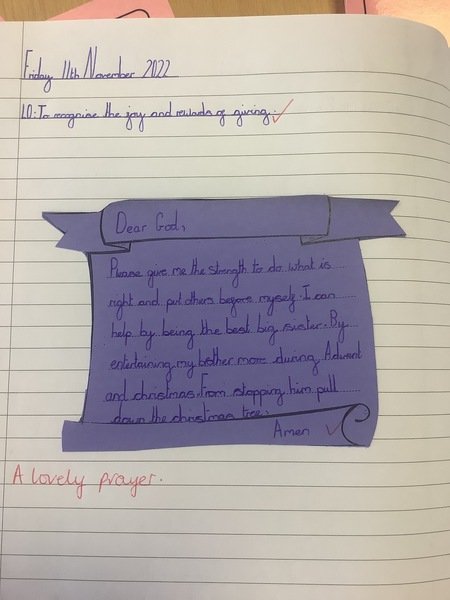 Friday 11th November 2022
LO: To recognise the joy and rewards of giving.
Dear God,
Please give me the strength to do what is
right and put others before myself. I can
help by being the best big sister. By
entertaining my bother more during Advent
and christmas. From stopping him pull
down the christmas tree.
Amen
A lovely prayer.